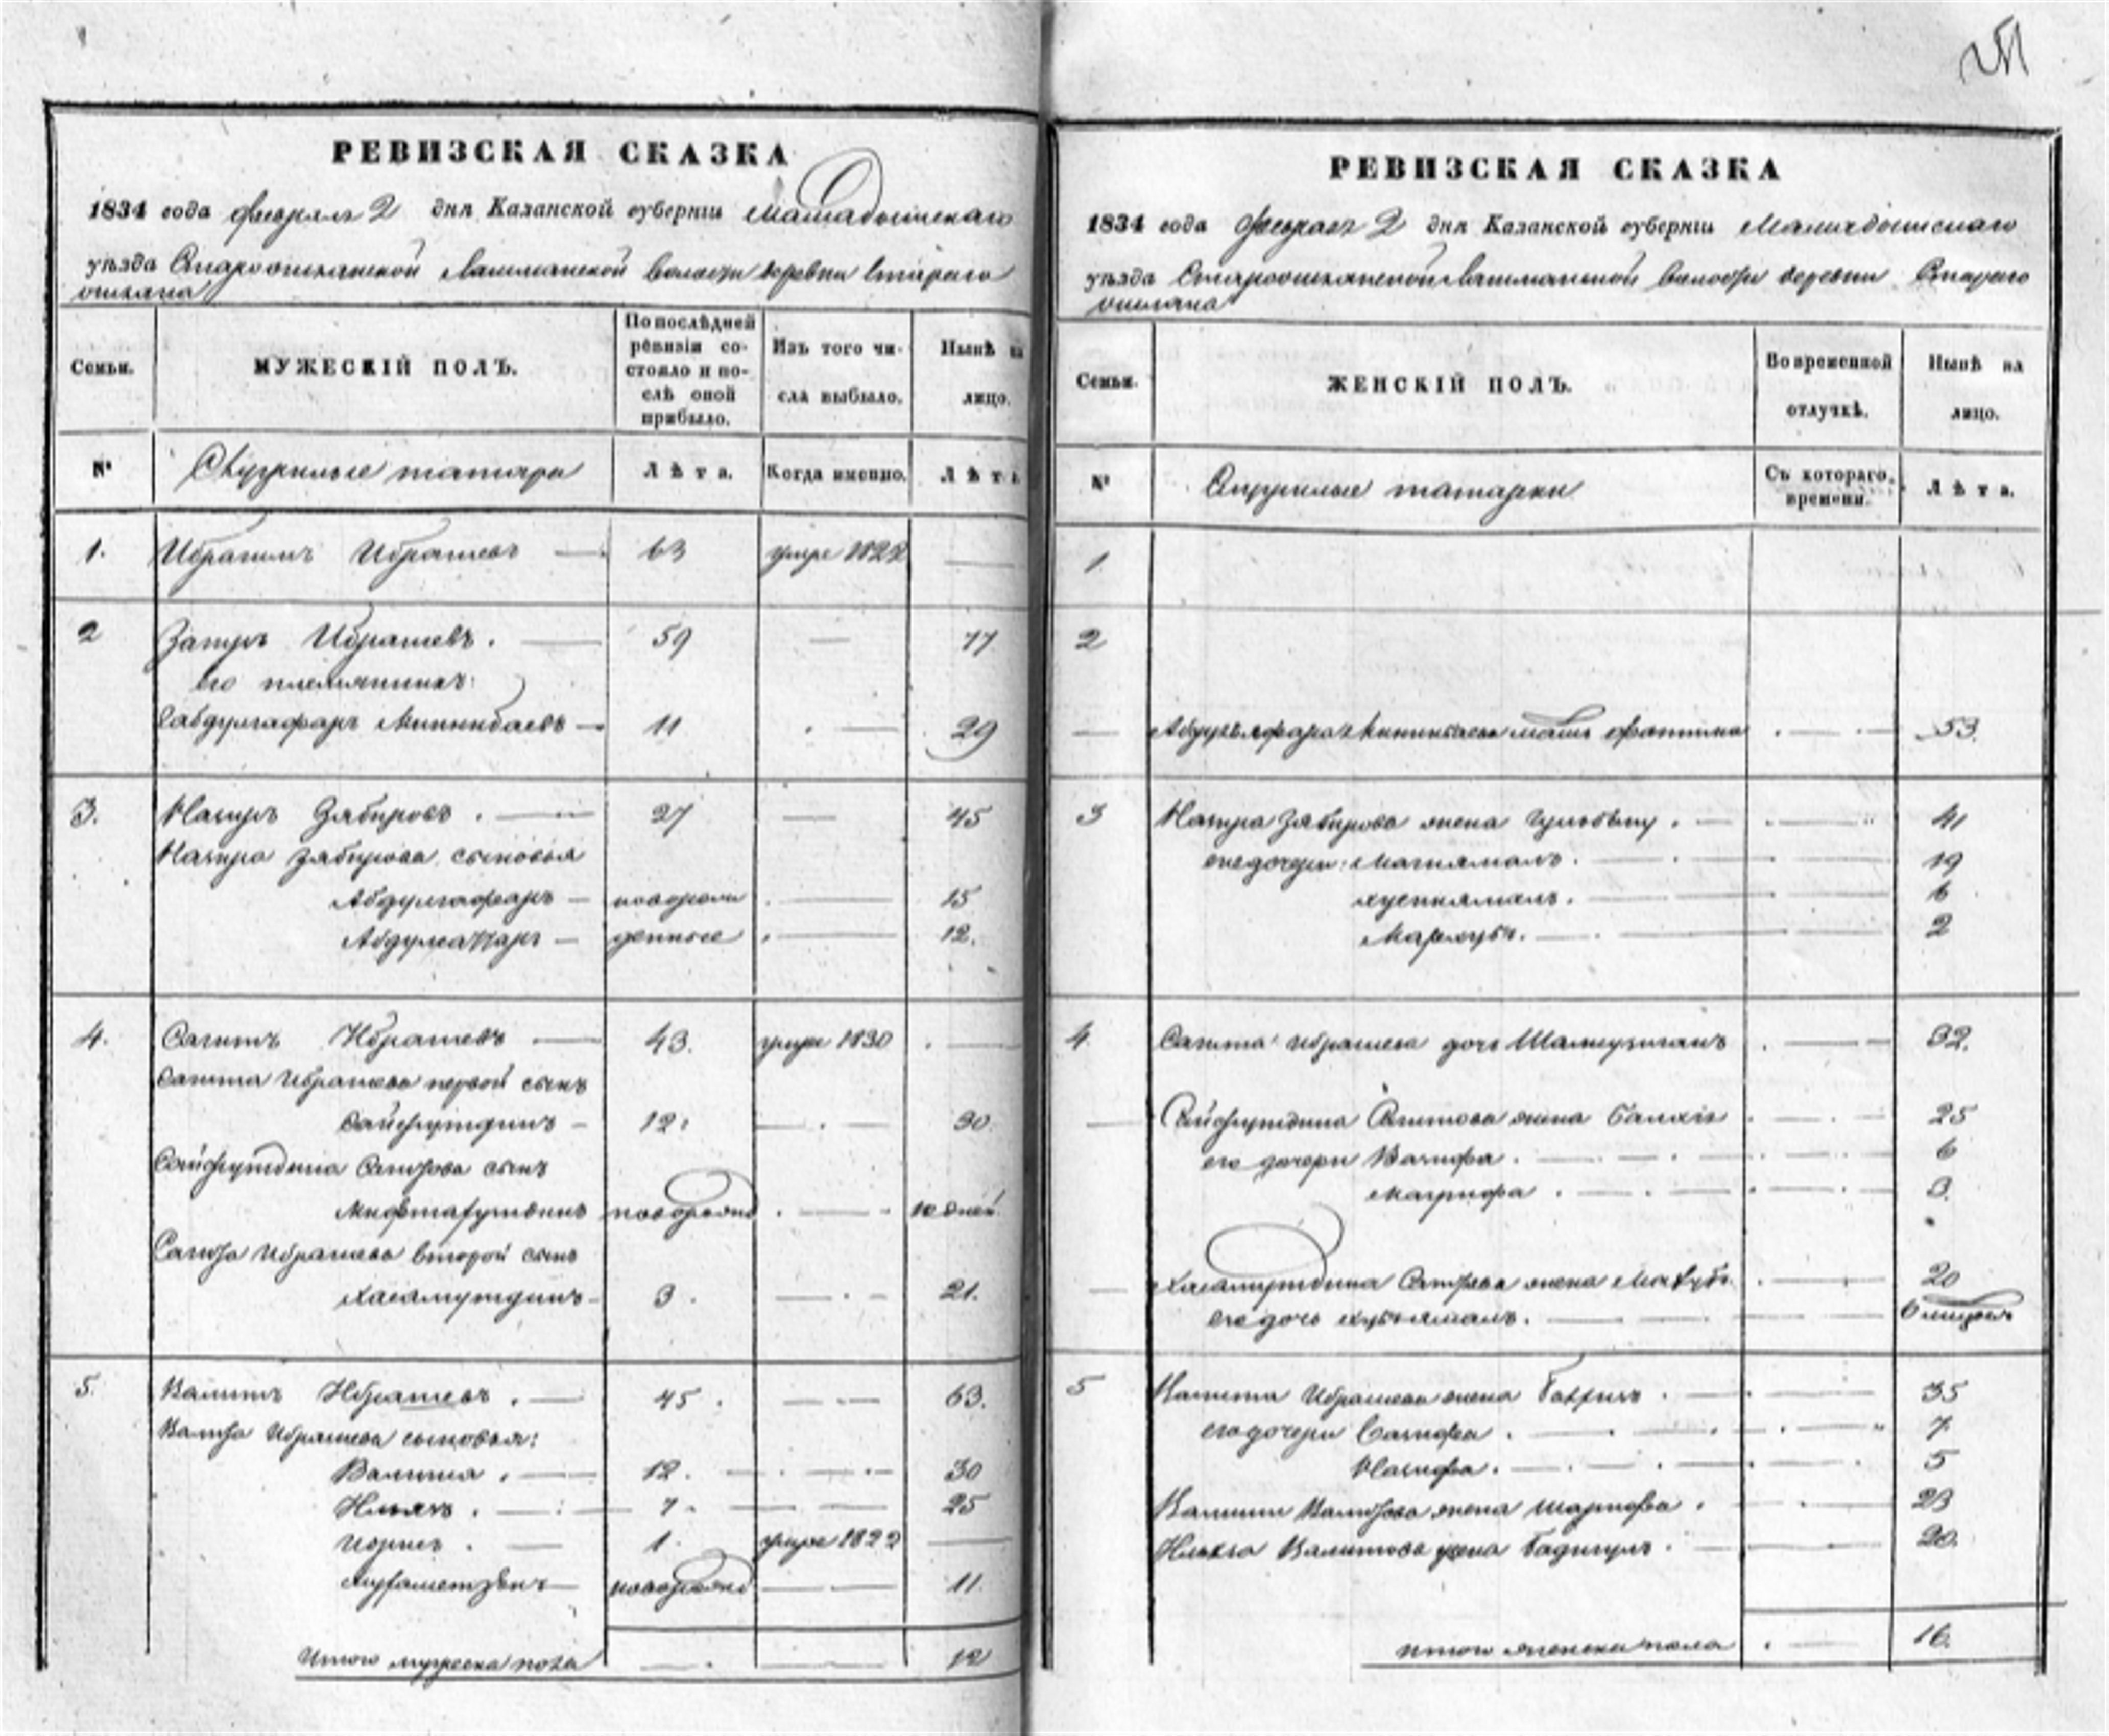 РЕВИЗСКАЯ СКАЗКА
1834 года февраля 2 дня Казанской губерніи Мамадышскаго
уѣзда Староошланской Лашманской волости деревни Стараго
ошляна
Семьи.
МУЖЕСКІЙ ПОЛЪ.
По послѣдней ревизіи состояло и послѣ оной прибыло.
Изъ того числа выбыло.
Нынѣ на лицо.
№
Служилые татары
Лѣта.
Когда именно.
Лѣта
1. Ибрагимъ Ибрашевъ 63 умре 1822
2 Ибрашевъ. 59 77
его племянникъ:
Габдулгафаръ Мининбаевъ 11 29
3. Насыръ Зябировъ. 27 45
Насыра Зябирова сыновья
Абдулгафаръ новорож 15
денные 12.
4. Сагитъ Ибрашевъ 43. умре 1830
Сагита Ибрашева первой сынъ
Сайфутдинъ 12. 30.
Сайфутдина Сагитова сынъ
Мифтахутдинъ новорожд 10 дней
Сагита Ибрашева второй сынъ
Хасамутдинъ 3. 21.
5. Валитъ Ибрашевъ. 45. 63.
Валита Ибрашева сыновья:
Валиша. 12. 30
Ильясъ. 7. 25
1. умре 1822
новорожд 11.
Итого мужеска пола 12
РЕВИЗСКАЯ СКАЗКА
1834 года февраля 2 дня Казанской губерніи Мамадышскаго
уѣзда Староошланской Лашманской волости деревни Стараго
ошляна
Семьи.
ЖЕНСКІЙ ПОЛЪ.
Во временной отлучкѣ.
Нынѣ на лицо.
№
Служилые татарки
Съ котораго времени.
Лѣта.
1.
2
Мининбаева мать Фатима 53.
3 Насыра Зябирова жена 41
его дочери: Магиямалъ. 19
Хуснямалъ. 6
2
4. Сагита Ибрашева дочь 32.
Сайфутдина Сагитова жена 25
его дочери Вагифа. 6
Магрифа. 3.
Хасамутдина Сагитова жена 20
его дочь 6 месяцев
5 Валита Ибрашева жена 35
его дочери Сагифа. 7.
Нагифа. 5
Валиши Валитова жена Шарифа. 23
Ильяса Валитова жена Бадигулъ. 20.
итого женска пола 16.